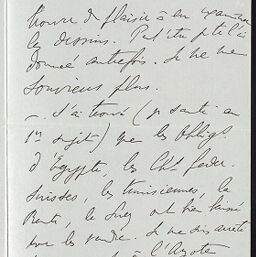 trouve de plaisir à en examiner
les dessins. Peut'être je te l'ai
donné autrefois. Je ne me
souviens plus.
— J'ai trouvé (je saute au
1er sujet) que les obligs
d'Egypte, les Ch. feder.
Suisses, les tunisiennes, la
Rente, le Suez ont bien baissé
les vendre. Je me suis arrêté
à l'Azote